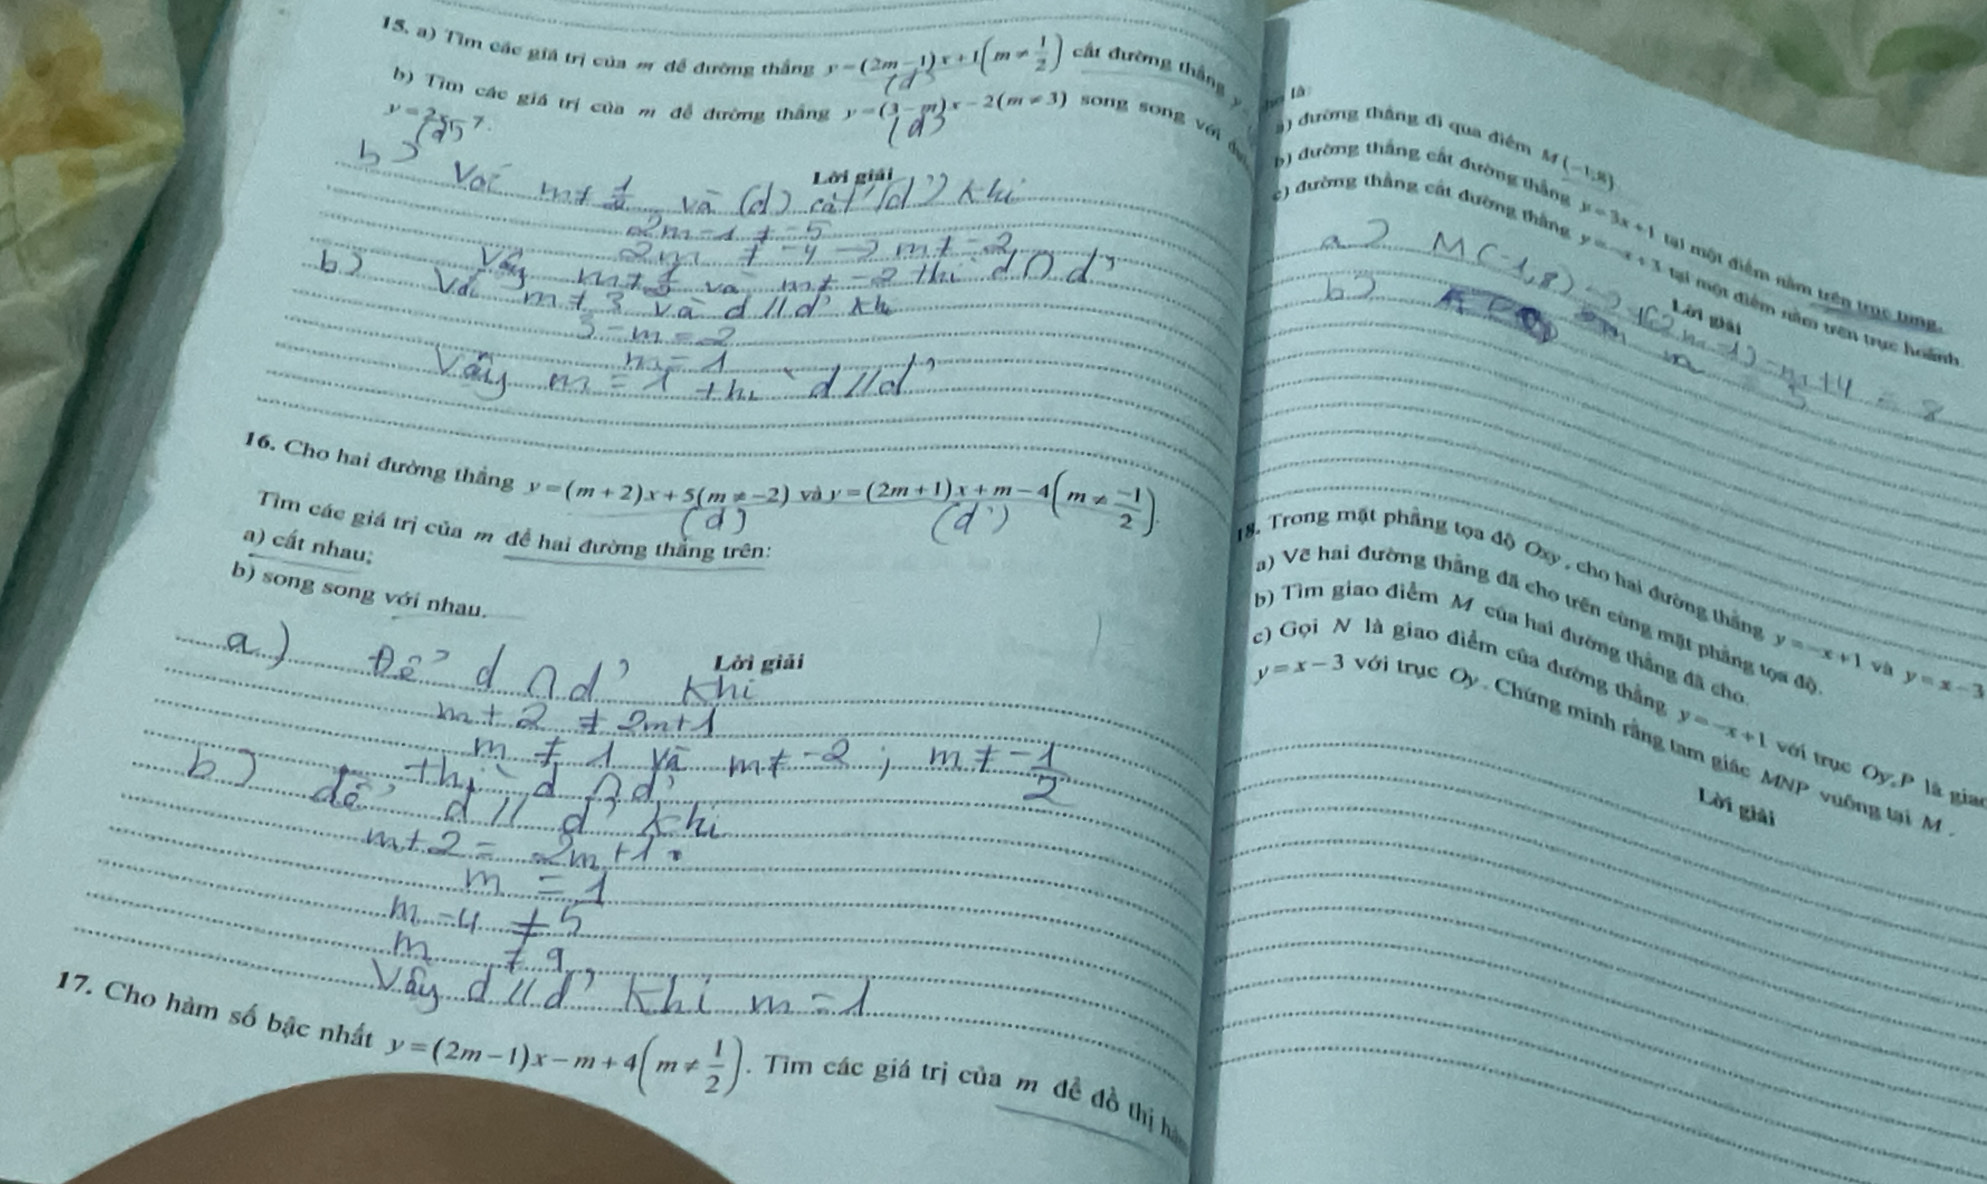 15. a) Tìm các giá trị của m để đường thẳng y = (2m − 1)x + 1(m ≠ 1/2) cắt đường thẳng y
(d)
b) Tìm các giá trị của m để đường thẳng y = (3 − m)x − 2(m ≠ 3) song song với
(d)
y = 2x
Lời giải
b) Với m ≠ 1/2 và (d) cắt (d') khi
2m − 1 ≠ −5
2m ≠ −4 → m ≠ −2
Vậy m ≠ 1/2 và m ≠ −2 thì d ∩ d'
b) Với m ≠ 3 và d // d' khi
3 − m = 2
m = 1
Vậy m = 1 thì d // d'
16. Cho hai đường thẳng y = (m + 2)x + 5(m ≠ −2) và y = (2m + 1)x + m − 4(m ≠ −1/2).
(d) (d')
Tìm các giá trị của m để hai đường thẳng trên:
a) cắt nhau;
b) song song với nhau.
Lời giải
a) Để d ∩ d' khi
m + 2 ≠ 2m + 1
m ≠ 1 và m ≠ −2 ; m ≠ −1/2
thì d ∩ d'
b) để d // d' khi
m + 2 = 2m + 1
m = 1
m − 4 ≠ 5
m ≠ 9
Vậy d // d' khi m = 1
17. Cho hàm số bậc nhất y = (2m − 1)x − m + 4(m ≠ 1/2). Tìm các giá trị của m để đồ thị
là:
a) đường thẳng đi qua điểm M(−1;8).
b) đường thẳng cắt đường thẳng y = 3x + 1 tại một điểm nằm trên trục tung.
c) đường thẳng cắt đường thẳng y = −x + 3 tại một điểm nằm trên trục hoành.
Lời giải
a) M(−1,8) → (2m − 1) − m + 4 = 8
b)
18. Trong mặt phẳng tọa độ Oxy, cho hai đường thẳng y = −x + 1 và y = x − 3
a) Vẽ hai đường thẳng đã cho trên cùng mặt phẳng tọa độ.
b) Tìm giao điểm M của hai đường thẳng đã cho.
c) Gọi N là giao điểm của đường thẳng y = −x + 1 với trục Oy, P là giao
y = x − 3 với trục Oy. Chứng minh rằng tam giác MNP vuông tại M.
Lời giải